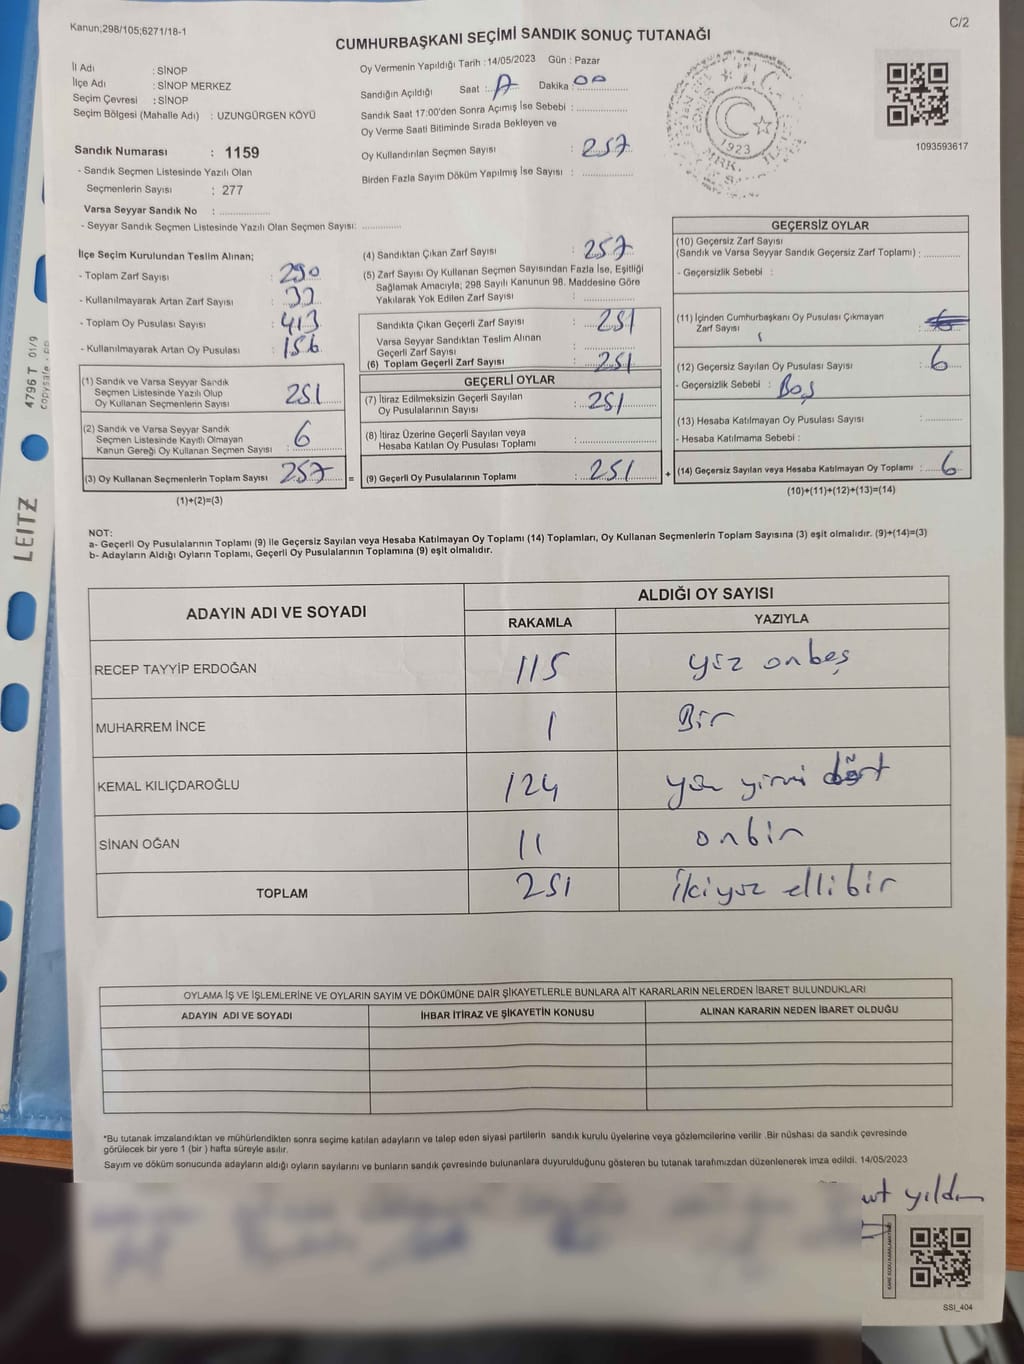 Kanun;298/105;6271/18-1
C/2
CUMHURBAŞKANI SEÇİMİ SANDIK SONUÇ TUTANAĞI
İl Adı : SİNOP
İlçe Adı : SİNOP MERKEZ
Seçim Çevresi : SİNOP
Seçim Bölgesi (Mahalle Adı) : UZUNGÜRGEN KÖYÜ
Sandık Numarası : 1159
- Sandık Seçmen Listesinde Yazılı Olan
Seçmenlerin Sayısı : 277
Varsa Seyyar Sandık No : ..................
- Seyyar Sandık Seçmen Listesinde Yazılı Olan Seçmen Sayısı: .............
Oy Vermenin Yapıldığı Tarih : 14/05/2023 Gün : Pazar
Sandığın Açıldığı Saat : Dakika : 00
Sandık Saat 17:00'den Sonra Açımış İse Sebebi : ................
Oy Verme Saati Bitiminde Sırada Bekleyen ve
Oy Kullandırılan Seçmen Sayısı : 257
Birden Fazla Sayım Döküm Yapılmış İse Sayısı : ................
1923
1093593617
İlçe Seçim Kurulundan Teslim Alınan;
- Toplam Zarf Sayısı : 290
- Kullanılmayarak Artan Zarf Sayısı : 33
- Toplam Oy Pusulası Sayısı : 413
- Kullanılmayarak Artan Oy Pusulası : 156
(1) Sandık ve Varsa Seyyar Sandık
Seçmen Listesinde Yazılı Olup
Oy Kullanan Seçmenlerin Sayısı 251
(2) Sandık ve Varsa Seyyar Sandık
Seçmen Listesinde Kayıtlı Olmayan
Kanun Gereği Oy Kullanan Seçmen Sayısı : 6
(3) Oy Kullanan Seçmenlerin Toplam Sayısı : 257 =
(1)+(2)=(3)
(4) Sandıktan Çıkan Zarf Sayısı : 257
(5) Zarf Sayısı Oy Kullanan Seçmen Sayısından Fazla İse, Eşitliği
Sağlamak Amacıyla; 298 Sayılı Kanunun 98. Maddesine Göre
Yakılarak Yok Edilen Zarf Sayısı : ................
Sandıkta Çıkan Geçerli Zarf Sayısı : 251
Varsa Seyyar Sandıktan Teslim Alınan
Geçerli Zarf Sayısı : ................
(6) Toplam Geçerli Zarf Sayısı : 251
GEÇERLİ OYLAR
(7) İtiraz Edilmeksizin Geçerli Sayılan
Oy Pusulalarının Sayısı : 251
(8) İtiraz Üzerine Geçerli Sayılan veya
Hesaba Katılan Oy Pusulası Toplamı : ................
(9) Geçerli Oy Pusulalarının Toplamı : 251 +
GEÇERSİZ OYLAR
(10) Geçersiz Zarf Sayısı
(Sandık ve Varsa Seyyar Sandık Geçersiz Zarf Toplamı) : ............
- Geçersizlik Sebebi :
(11) İçinden Cumhurbaşkanı Oy Pusulası Çıkmayan
Zarf Sayısı
(12) Geçersiz Sayılan Oy Pusulası Sayısı : 6
- Geçersizlik Sebebi : Boş
(13) Hesaba Katılmayan Oy Pusulası Sayısı : ............
- Hesaba Katılmama Sebebi :
(14) Geçersiz Sayılan veya Hesaba Katılmayan Oy Toplamı : 6
(10)+(11)+(12)+(13)=(14)
NOT:
a- Geçerli Oy Pusulalarının Toplamı (9) ile Geçersiz Sayılan veya Hesaba Katılmayan Oy Toplamı (14) Toplamları, Oy Kullanan Seçmenlerin Toplam Sayısına (3) eşit olmalıdır. (9)+(14)=(3)
b- Adayların Aldığı Oyların Toplamı, Geçerli Oy Pusulalarının Toplamına (9) eşit olmalıdır.
ADAYIN ADI VE SOYADI ALDIĞI OY SAYISI
RAKAMLA YAZIYLA
RECEP TAYYİP ERDOĞAN 115 yüz onbeş
MUHARREM İNCE 1 Bir
KEMAL KILIÇDAROĞLU 124 yüz yirmi dört
SİNAN OĞAN 11 onbir
TOPLAM 251 ikiyüz ellibir
OYLAMA İŞ VE İŞLEMLERİNE VE OYLARIN SAYIM VE DÖKÜMÜNE DAİR ŞİKAYETLERLE BUNLARA AİT KARARLARIN NELERDEN İBARET BULUNDUKLARI
ADAYIN ADI VE SOYADI İHBAR İTİRAZ VE ŞİKAYETİN KONUSU ALINAN KARARIN NEDEN İBARET OLDUĞU
*Bu tutanak imzalandıktan ve mühürlendikten sonra seçime katılan adayların ve talep eden siyasi partilerin sandık kurulu üyelerine veya gözlemcilerine verilir .Bir nüshası da sandık çevresinde
görülecek bir yere 1 (bir ) hafta süreyle asılır.
Sayım ve döküm sonucunda adayların aldığı oyların sayılarını ve bunların sandık çevresinde bulunanlara duyurulduğunu gösteren bu tutanak tarafımızdan düzenlenerek imza edildi. 14/05/2023
SSI_404
LEITZ
4796 T 01/9
copysafe